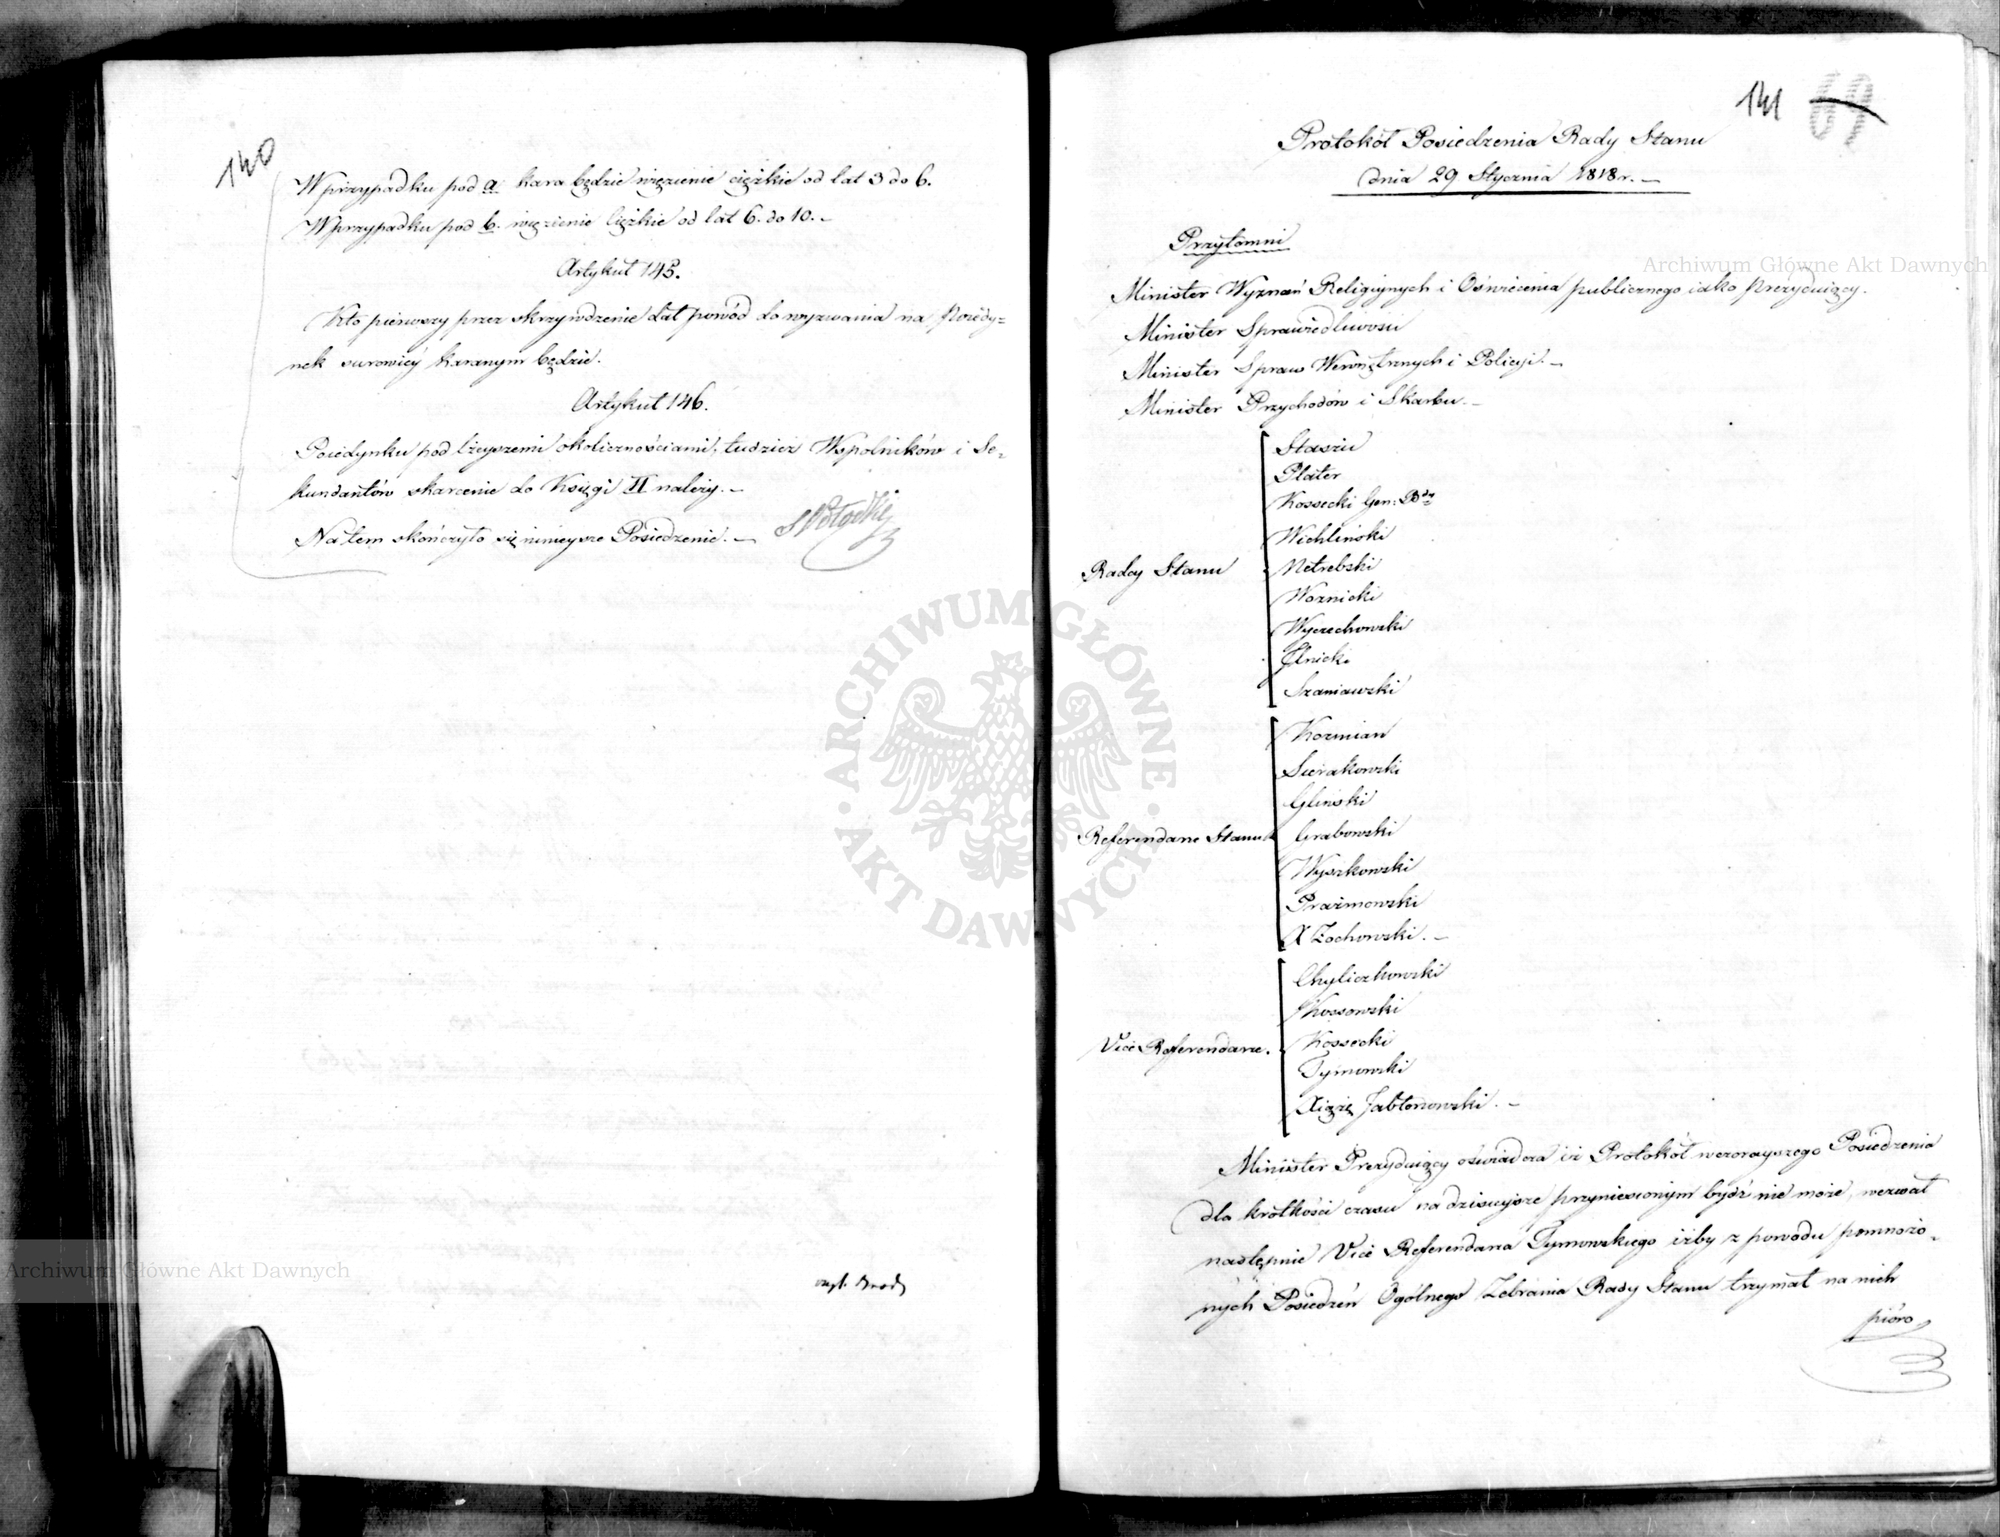 140
W przypadku pod a. kara będzie więzienie ciężkie od lat 3 do 6.
W przypadku pod b. więzienie ciężkie od lat 6. do 10. –
Artykuł 145.
Kto pierwszy przez skrzywdzenie dał powód do wyzwania na Poiedy=
nek surowiéy karanym będzie.
Artykuł 146.
Poiedynku pod lżeyszemi okolicznościami, tudzież Wspolników i Se=
kundantów skarcenie do Księgi II należy. –
Na tem skończyło się ninieysze Posiedzenie. –
141 69
Protokół Posiedzenia Rady Stanu
dnia 29 Stycznia 1818 r. –
Przytomni
Minister Wyznań Religiynych i Oświecenia publicznego iako Prezyduiący.
Minister Sprawiedliwości
Minister Spraw Wewnętrznych i Policyi. –
Minister Przychodów i Skarbu. –
Radcy Stanu
Staszic
Plater
Kossecki Gen: Bdy
Wichliński
Netrebski
Woznicki
Wyczechowski
Lnicki
Szaniawski
Referendarze Stanu
Kozmian
Sierakowski
Gliński
Grabowski
Wyszkowski
Prażmowski
X Żochowski. –
Vice Referendarze.
Chyliczkowski
Kossowski
Kossecki
Tymowski
Xiąże Jabłonowski. –
Minister Prezyduiący oświadcza iż Protokół wczorayszego Posiedzenia
dla krótkości czasu na dzisieysze przyniesionym bydź nie może, wezwał
następnie Vice Referendarza Tymowskiego iżby z powodu pomnożo=
nych Posiedzeń Ogólnego Zebrania Rady Stanu trzymał na nich
pióro
Archiwum Główne Akt Dawnych
Archiwum Główne Akt Dawnych
ARCHIWUM GŁÓWNE · AKT DAWNYCH ·